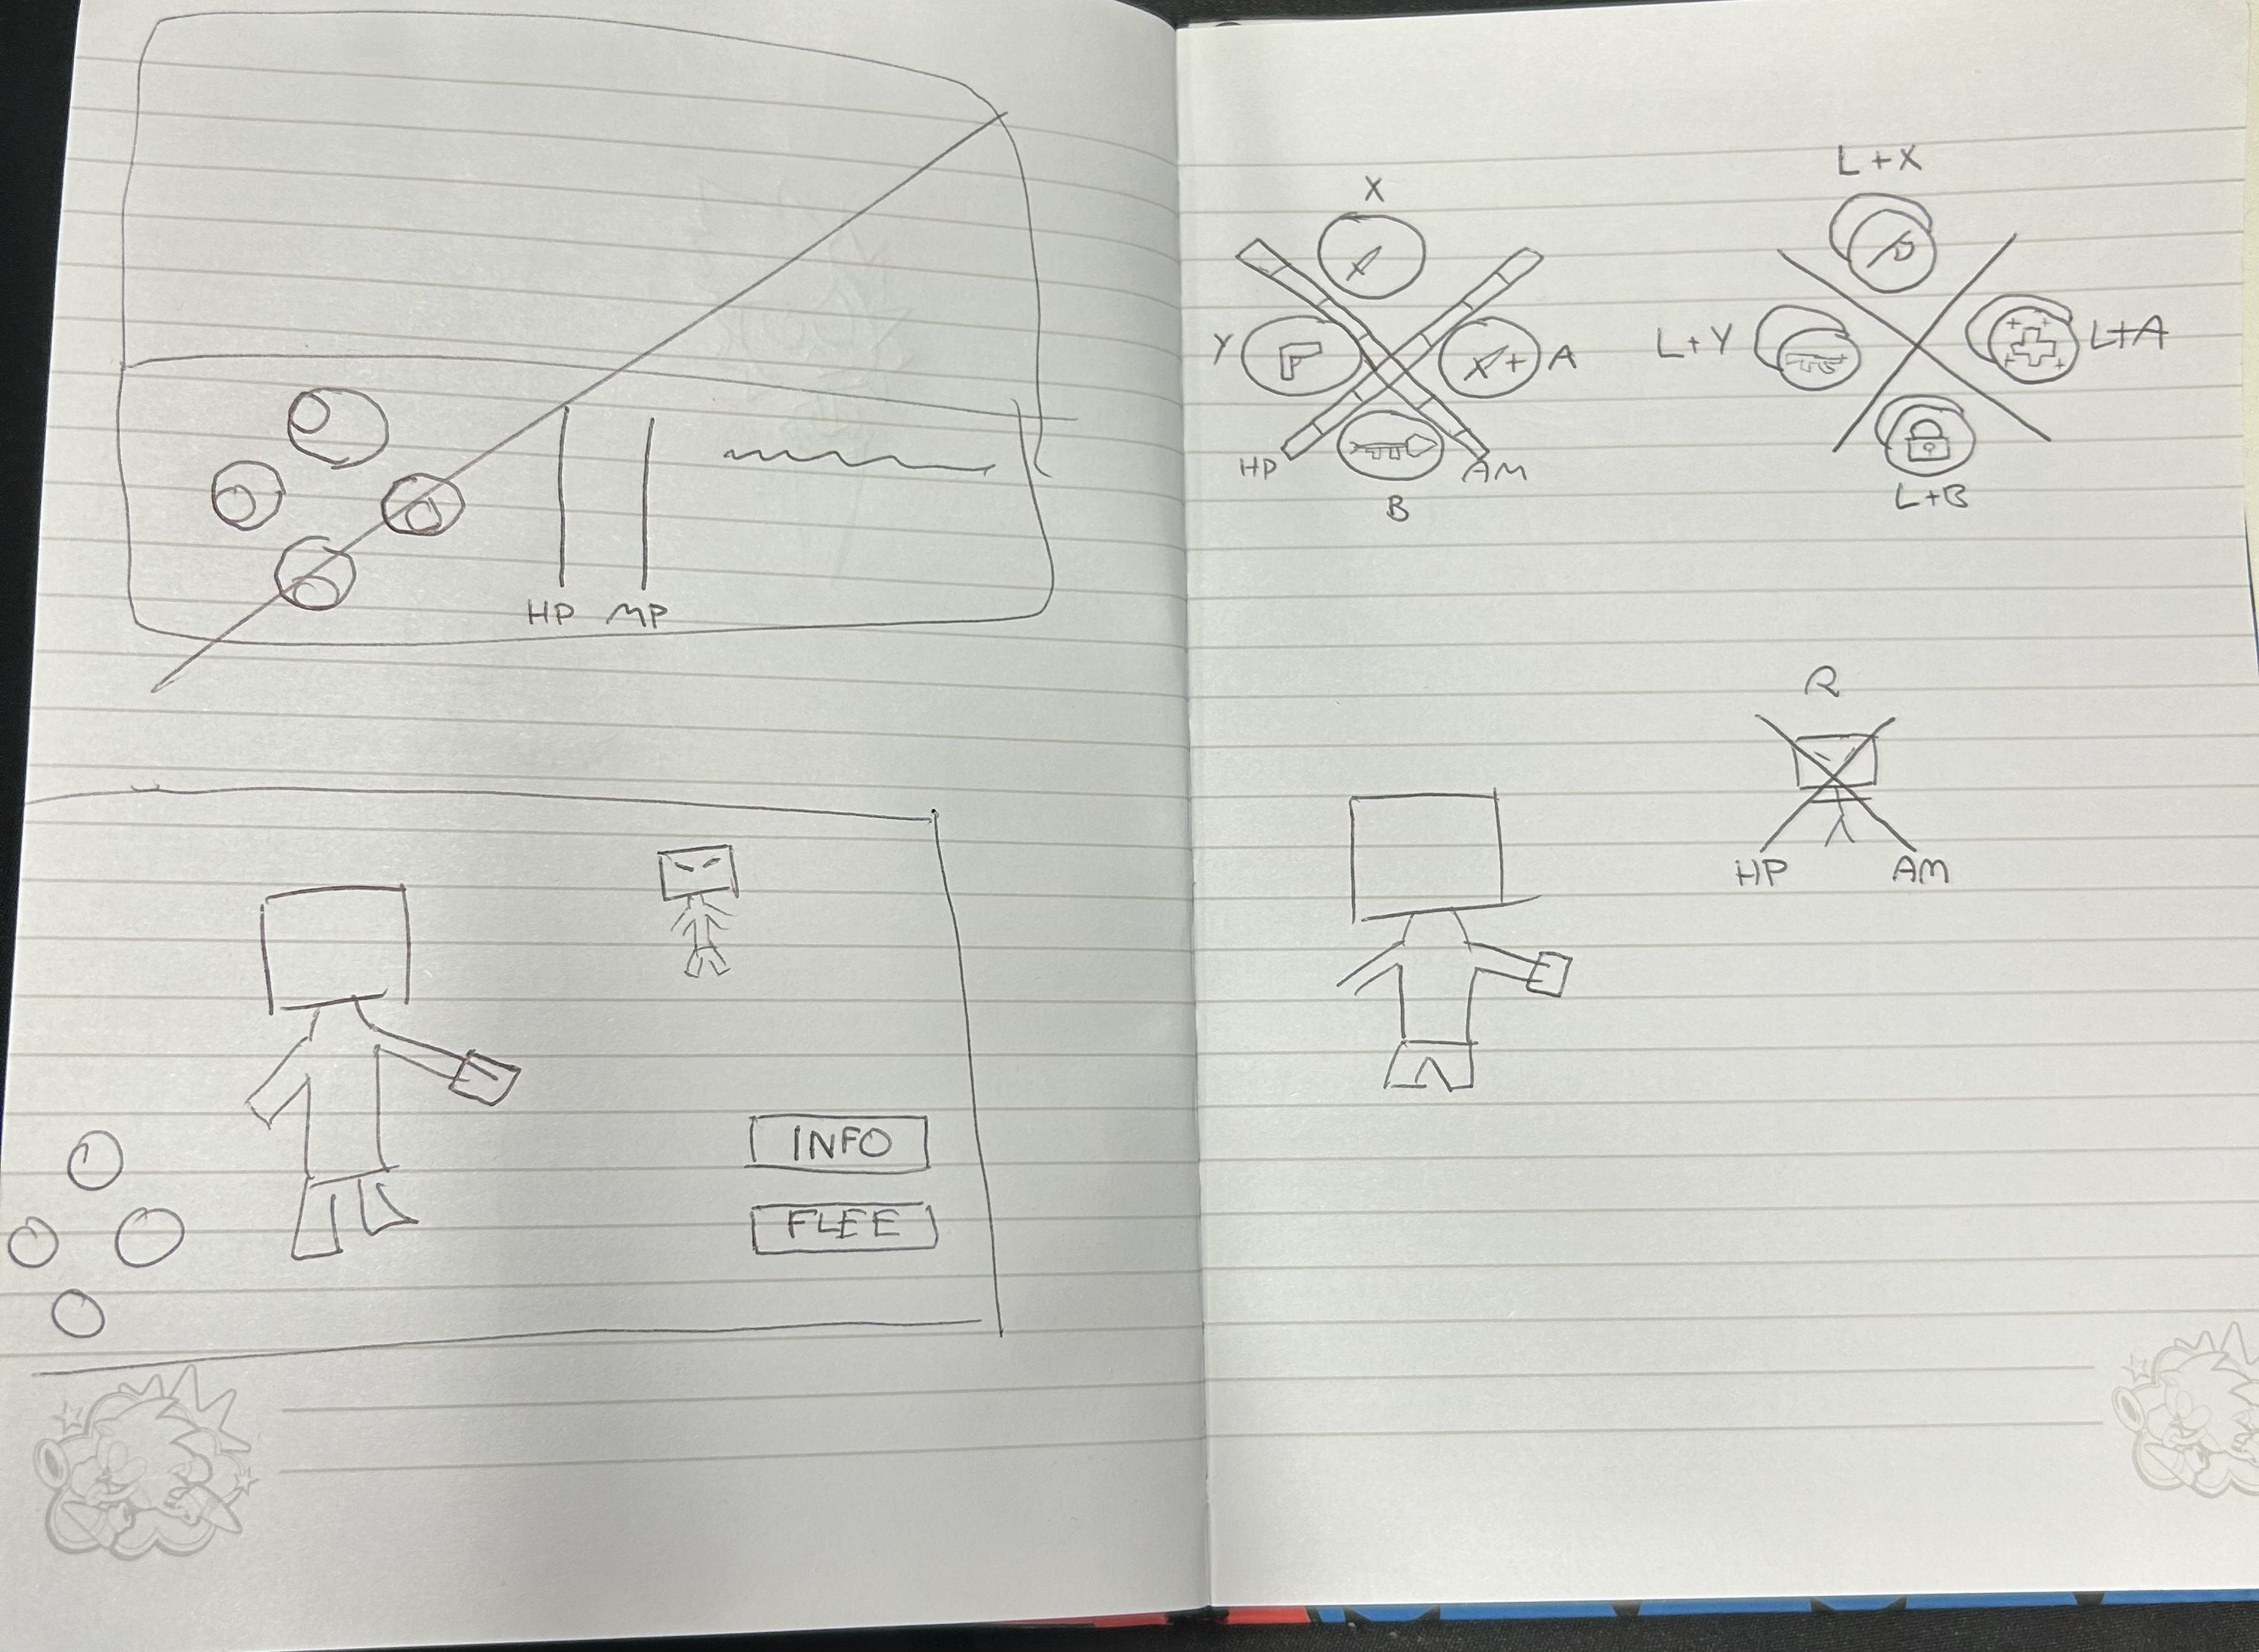 HP MP
INFO
FLEE
X
Y
A
HP
AM
B
L+X
L+Y
L+A
L+B
R
HP
AM